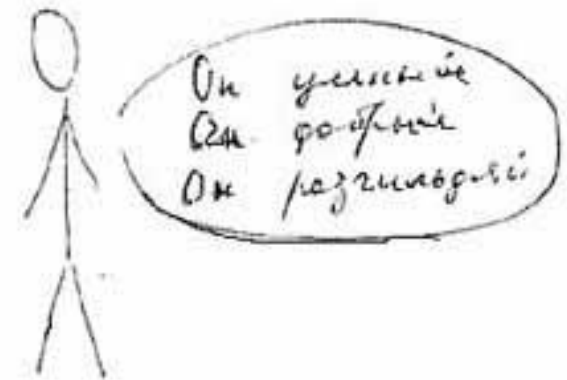 Он умный
Он добрый
Он разгильдяй